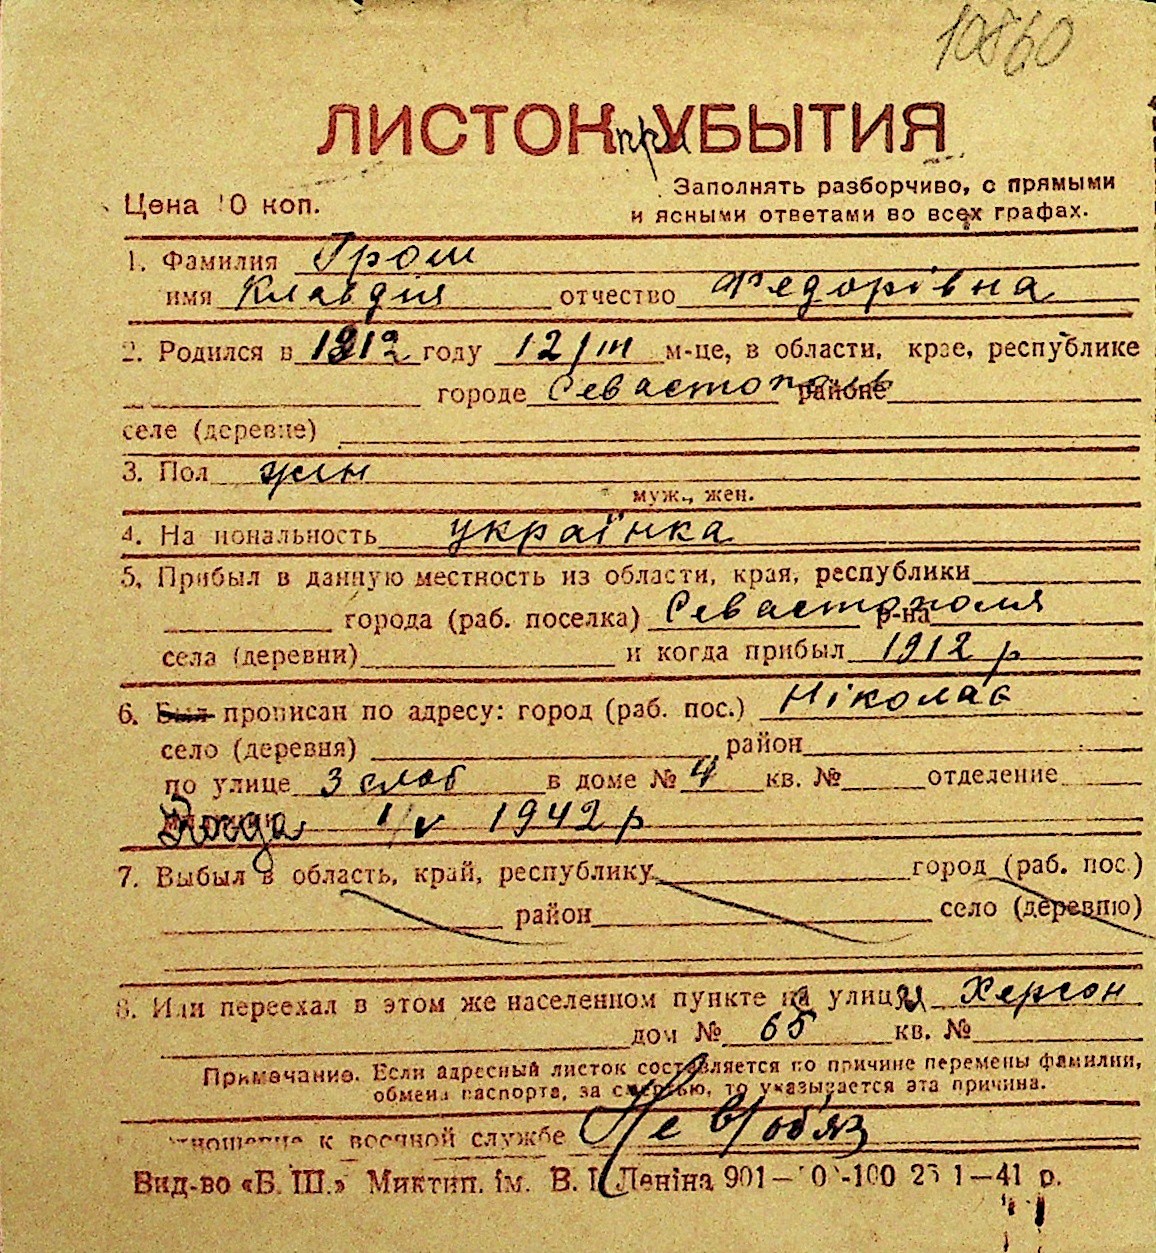 10860
ЛИСТОК при УБЫТИЯ
Цена 10 коп.
Заполнять разборчиво, с прямыми
и ясными ответами во всех графах.
1. Фамилия Гром
имя Клавдия отчество Федорівна
2. Родился в 1912 году 12/III м-це, в области, крае, республике
городе Севастополь районе
селе (деревне)
3. Пол жін
муж., жен.
4. Национальность українка
5. Прибыл в данную местность из области, края, республики
города (раб. поселка) Севастополя р-на
села (деревни) и когда прибыл 1912 р
6. Был прописан по адресу: город (раб. пос.) Ніколає
село (деревня) район
по улице 3 слоб в доме № 4 кв. № отделение
Когда 1/V 1942 р
7. Выбыл в область, край, республику город (раб. пос.)
район село (деревню)
8. Или переехал в этом же населенном пункте на улицу Херсон
дом № 65 кв. №
Примечание. Если адресный листок составляется по причине перемены фамилии,
обмена паспорта, за смертью, то указывается эта причина.
отношение к военной службе Не в/обяз
Вид-во «Б. Ш.» Миктип. ім. В. І. Леніна 901— -100 1—41 р.